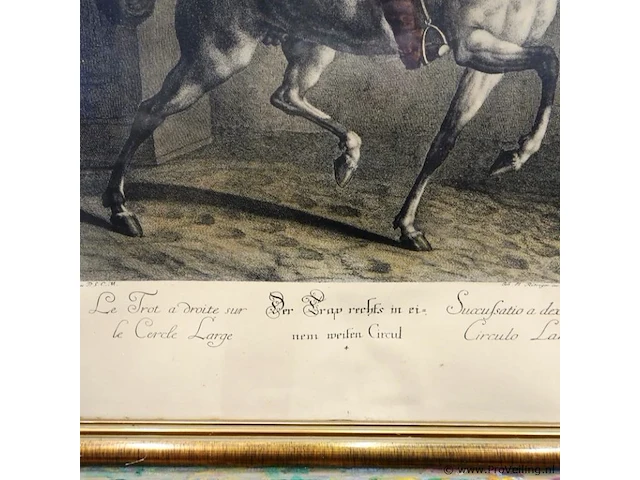 Le Trot a droite sur
le Cercle Large
Der Trap rechts in ei=
nem weiten Circul
Succuſsatio a dex
Circulo La
© www.ProVeiling.nl